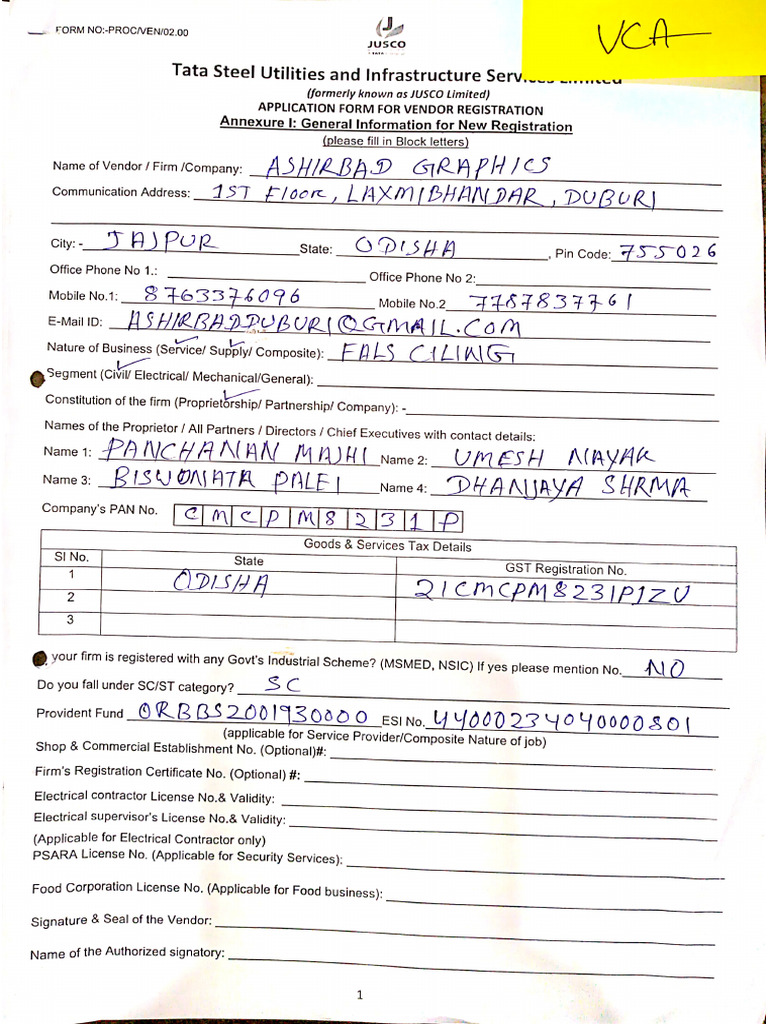 FORM NO:-PROC/VEN/02.00
VCA
JUSCO
Tata Steel Utilities and Infrastructure Services Limited
(formerly known as JUSCO Limited)
APPLICATION FORM FOR VENDOR REGISTRATION
Annexure I: General Information for New Registration
(please fill in Block letters)
Name of Vendor / Firm /Company: ASHIRBAD GRAPHICS
Communication Address: 1ST Floor, LAXMIBHANDAR, DUBURI
City: - JAJPUR State: ODISHA, Pin Code: 755026
Office Phone No 1.: Office Phone No 2:
Mobile No.1: 8763376096 Mobile No.2 7787837761
E-Mail ID: ASHIRBADDUBURI@GMAIL.COM
Nature of Business (Service/ Supply/ Composite): FALS CILING
Segment (Civil/ Electrical/ Mechanical/General):
Constitution of the firm (Proprietorship/ Partnership/ Company): -
Names of the Proprietor / All Partners / Directors / Chief Executives with contact details:
Name 1: PANCHANAN MAJHI Name 2: UMESH NAYAK
Name 3: BISWONATA PALEI Name 4: DHANJAYA SHRMA
Company's PAN No. CMCPM8231P
Goods & Services Tax Details
Sl No. State GST Registration No.
1 ODISHA 21CMCPM8231P1ZU
2
3
your firm is registered with any Govt's Industrial Scheme? (MSMED, NSIC) If yes please mention No. NO
Do you fall under SC/ST category? SC
Provident Fund ORBBS2001930000 ESI No. 44000234040000801
(applicable for Service Provider/Composite Nature of job)
Shop & Commercial Establishment No. (Optional)#:
Firm's Registration Certificate No. (Optional) #:
Electrical contractor License No.& Validity:
Electrical supervisor's License No.& Validity:
(Applicable for Electrical Contractor only)
PSARA License No. (Applicable for Security Services):
Food Corporation License No. (Applicable for Food business):
Signature & Seal of the Vendor:
Name of the Authorized signatory:
1